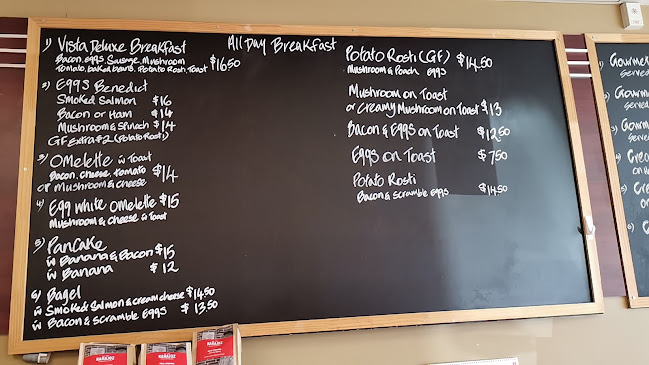 All Day Breakfast
1) Vista Deluxe Breakfast
Bacon, eggs, Sausage, Mushroom
Tomato, baked beans, Potato Rosti Toast $16.50
2) Eggs Benedict
Smoked Salmon $16
Bacon or Ham $14
Mushroom & Spinach $14
GF Extra $2 (Potato Rosti)
3) Omelette w Toast
Bacon, cheese, tomato $14
or Mushroom & cheese
4) Egg white Omelette $15
Mushroom & cheese w Toast
5) Pancake
w Banana & Bacon $15
w Banana $12
6) Bagel
w Smoked Salmon & cream cheese $14.50
w Bacon & Scramble Eggs $13.50
Potato Rosti (GF) $14.50
Mushroom & Poach eggs
Mushroom on Toast
or Creamy Mushroom on Toast $13
Bacon & Eggs on Toast $12.50
Eggs on Toast $7.50
Potato Rosti
Bacon & Scramble Eggs $14.50
1) Gourme
Serve
2) Gourm
Serve
3) Gourm
Serve
4) Crea
5) Crea
6)